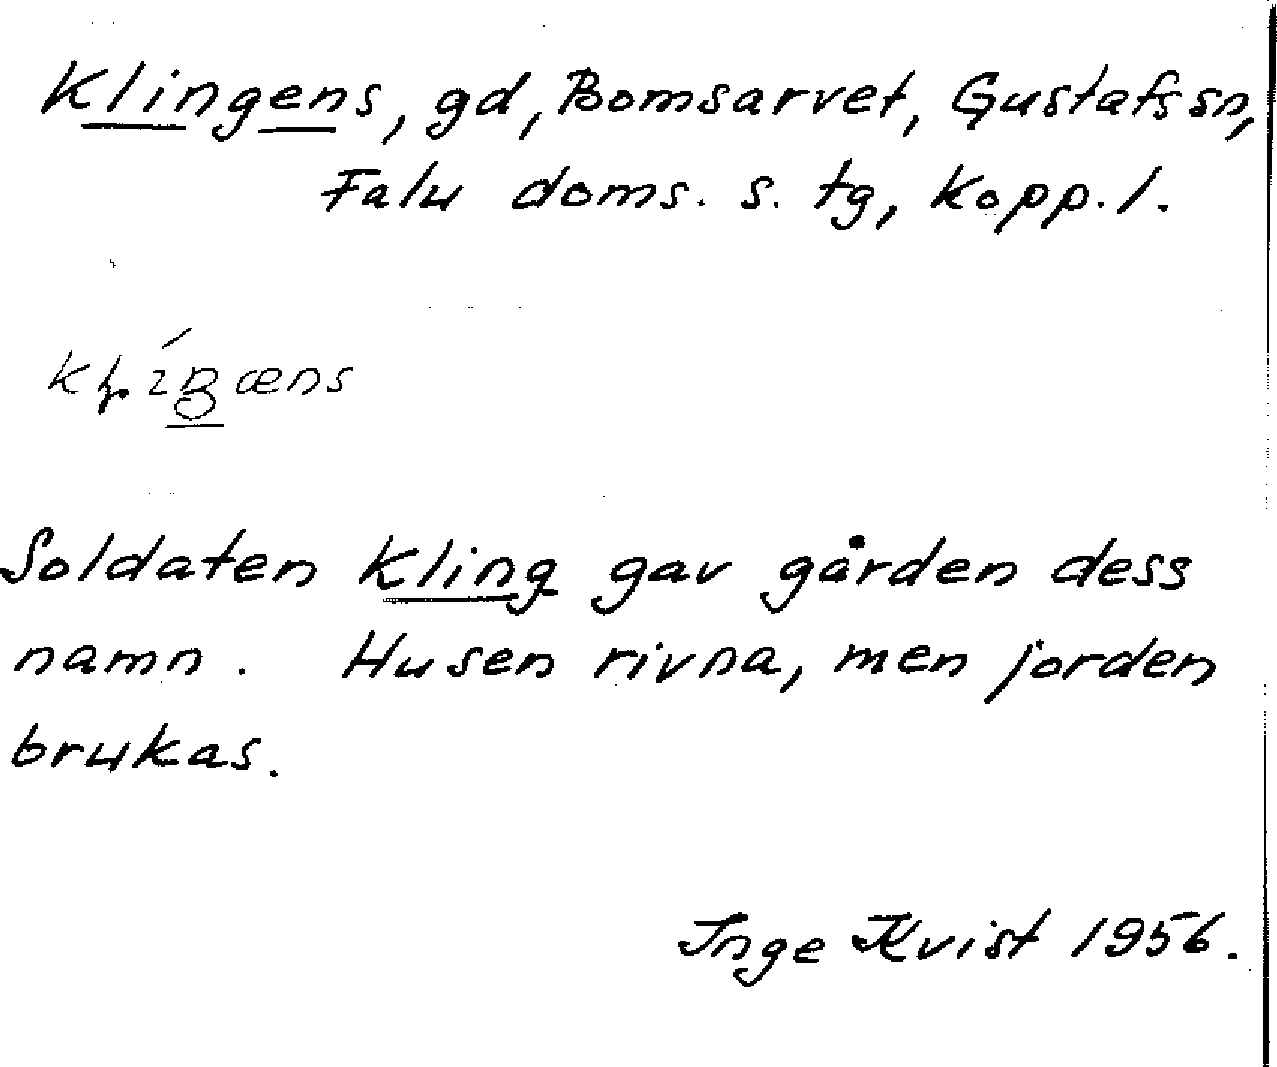 Klingens, gd, Bomsarvet, Gustafs sn,
Falu doms. s. tg, Kopp. l.
Soldaten Kling gav gården dess
namn. Husen rivna, men jorden
brukas.
Inge Kvist 1956.